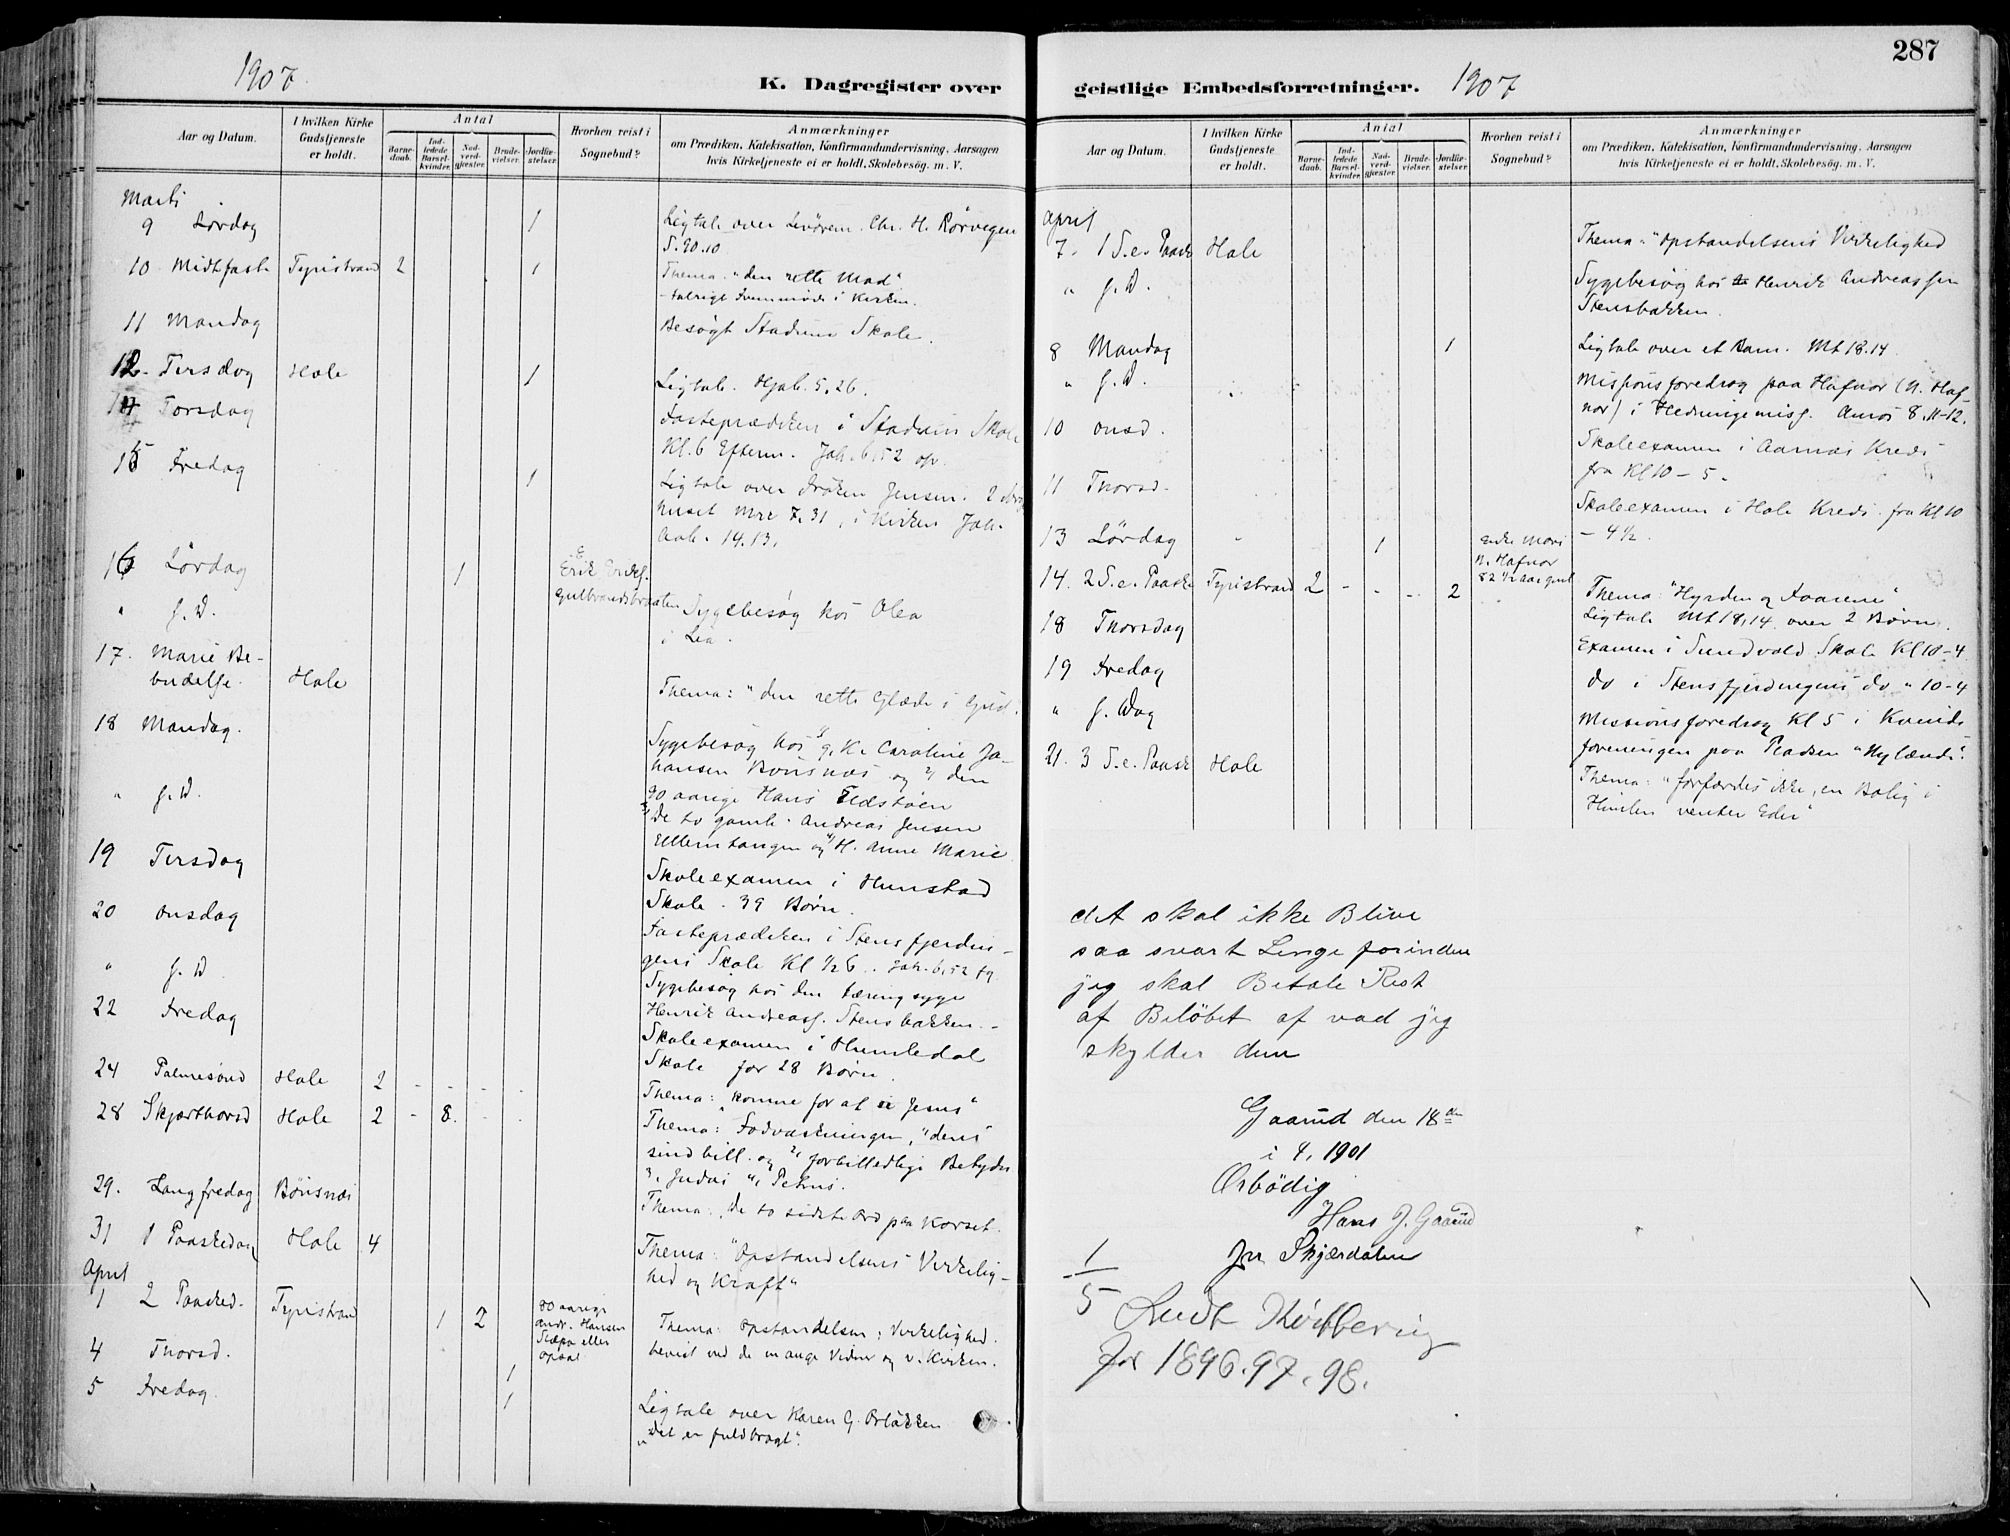 1907
K. Dagregister over
Aar og Datum.
I hvilken Kirke
Gudstjeneste
er holdt.
Antal
Barne-
daab.
Ind-
ledede
Barsel-
kvinder.
Nad-
verd-
gjæster.
Brude-
vielser.
Jordfæ-
stelser.
Hvorhen reist i
Sognebud?
Anmærkninger
om Prædiken, Katekisation, Konfirmandundervisning, Aarsagen
hvis Kirketjeneste ei er holdt, Skolebesøg. m. V.
Marts
9 Lørdag 1 Ligtale over Chr. H. Rørvegen
S. 90.10
10 Midtfaste Tyristrand 2 1 Thema: "den rette Mad"
i Kirken.
11 Mandag Besøgt Stadum Skole.
12. Tirsdag Hole 1 Ligtale. Hjob. 5,26.
14 Torsdag Fasteprædiken i Stadum Skole
Kl. 6 Efterm. Joh. 6,52 og
15 Fredag 1 Ligtale over Frøken Jensen.
huset Mrc 7.31, i Kirken Joh.
Aab. 14.13.
16 Lørdag 1 Erik Eriks.
Gulbrandsbraaten
" s. D. Sygebesøg hos Olea
i Lia.
17. Marie Be-
budelse. Hole Thema: "den rette Glæde i Gud.
18 Mandag. Sygebesøg hos K. Caroline Jo-
hansen Bønsnæs og 2) den
" s. D. 90 aarige Hans
De to gamle Andreas Jensen
Ellemtangen og H. Anne Marie
19 Tirsdag Skoleexamen i Hunstad
Skole. 39 Børn.
20 Onsdag Fasteprædiken i Stensfjerdin-
gens Skole Kl ½6. Joh. 6,52 fg.
" s. D Sygebesøg hos den tæringsyge
Henrik Andreass. Stensbakken.
22 Fredag Skoleexamen i Humledal
Skole for 28 Børn.
24 Palmesønd Hole 2 - - - - Thema: "komme for at se Jesus"
28 Skjærthorsd Hole 2 - 8. - - Thema: Fodvaskningen, "dens
sindbill. og 2, forbilledlige Betydn
3, Judas 4, Petrus.
29. Langfredag Bønsnæs Thema: De to sidste Ord paa Korset.
31 1 Paaskedag Hole 4 Thema: "Opstandelsens Virkelig-
hed og Kraft"
April
1 2 Paasked. Tyristrand 1 2 90 aarige
Andr. Hansen
eller
Opsal
Thema: Opstandelsens Virkelighed.
bevist ved de mange Vidner og v. Kirken.
4 Thorsd. 1
5 Fredag. 1 Ligtale over Karen G.
"Det er fuldbragt".
287
geistlige Embedsforretninger. 1907
Aar og Datum.
I hvilken Kirke
Gudstjeneste
er holdt.
Antal
Barne-
daab.
Ind-
ledede
Barsel-
kvinder.
Nad-
verd-
gjæster.
Brude-
vielser.
Jordfæ-
stelser.
Hvorhen reist i
Sognebud?
Anmærkninger
om Prædiken, Katekisation, Konfirmandundervisning, Aarsagen
hvis Kirketjeneste ei er holdt, Skolebesøg. m. V.
April
7. 1 S. e. Paaske Hole Thema: "Opstandelsens Virkelighed
" s. D. Sygebesøg hos Henrik Andreassen
Stensbakken.
8 Mandag 1 Ligtale over et Barn. Mt 18.14
" s. D. Missionsforedrag paa Hafnor (N. Haf-
nor) i Hedningemiss. Amos 8.11-12.
10 Onsd. Skoleexamen i Aarnæs Kreds
fra Kl 10 - 5.
11 Thorsd. Skoleexamen i Hole Kreds fra Kl 10
- 4½.
13 Lørdag " 1 Enke Mari
N. Hafnor
82 ½ aar gml
14. 2 S. e. Paaske Tyristrand 2 - - - 2 Thema: "Hyrden og Faarene"
Ligtale Mt 18,14 over 2 Børn.
18 Thorsdag Examen i Sundvold Skole Kl 10-4
19 Fredag do i Stensfjerdingens do " 10-4
" s. Dag Missionsforedrag Kl 5 i Kvinde
foreningen paa Pladsen "Nylænde".
21. 3 S. e. Paaske Hole Thema: "forfærdes ikke, en Bolig i
Himlen venter Eder"
dt skal ikke Blive
saa svart Lenge forinden
jeg skal Betale Rest
af Beløbet af vad jeg
skylder dem
Gaarud den 18de
i 4. 1901
Ørbødig
Hans J. Gaarud
pr Skjærdalen
1/5
for 1896.97.98.